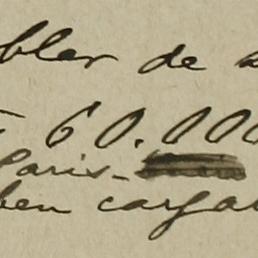 bler de
60.000
Paris-
ben cargar